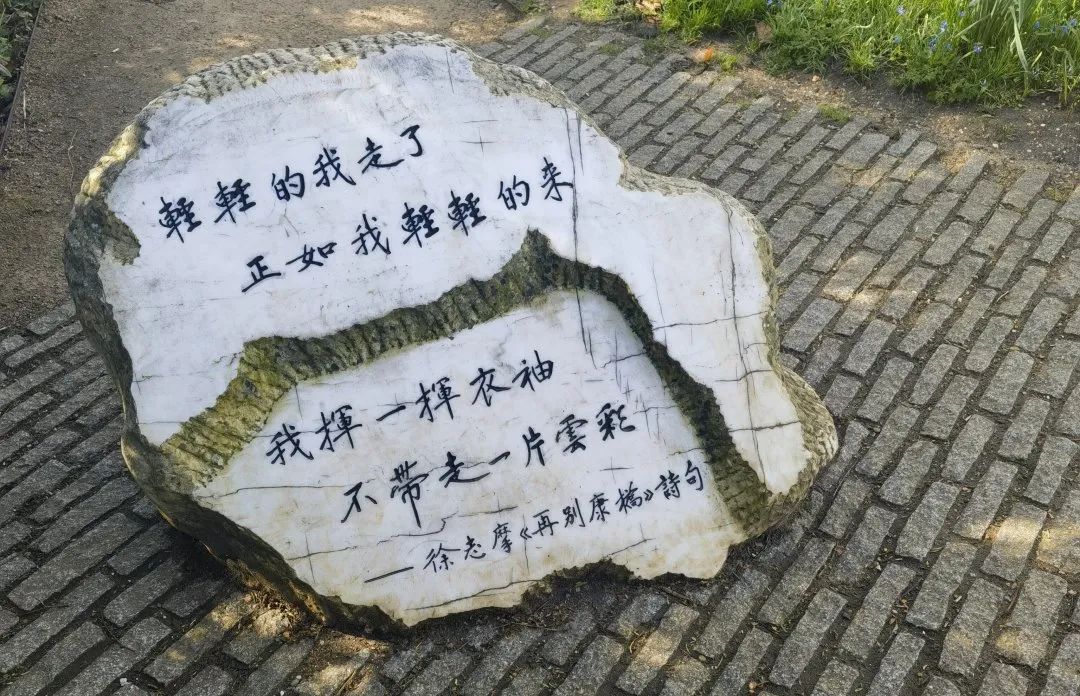 輕輕的我走了
正如我輕輕的来
我揮一揮衣袖
不帶走一片雲彩
—徐志摩《再别康橋》詩句